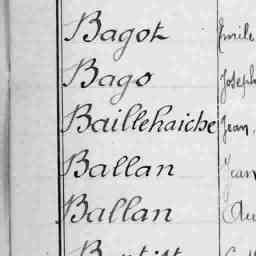 Bagot Emile
Bago Joseph
Baillehaiche Jean
Ballan Jean
Ballan